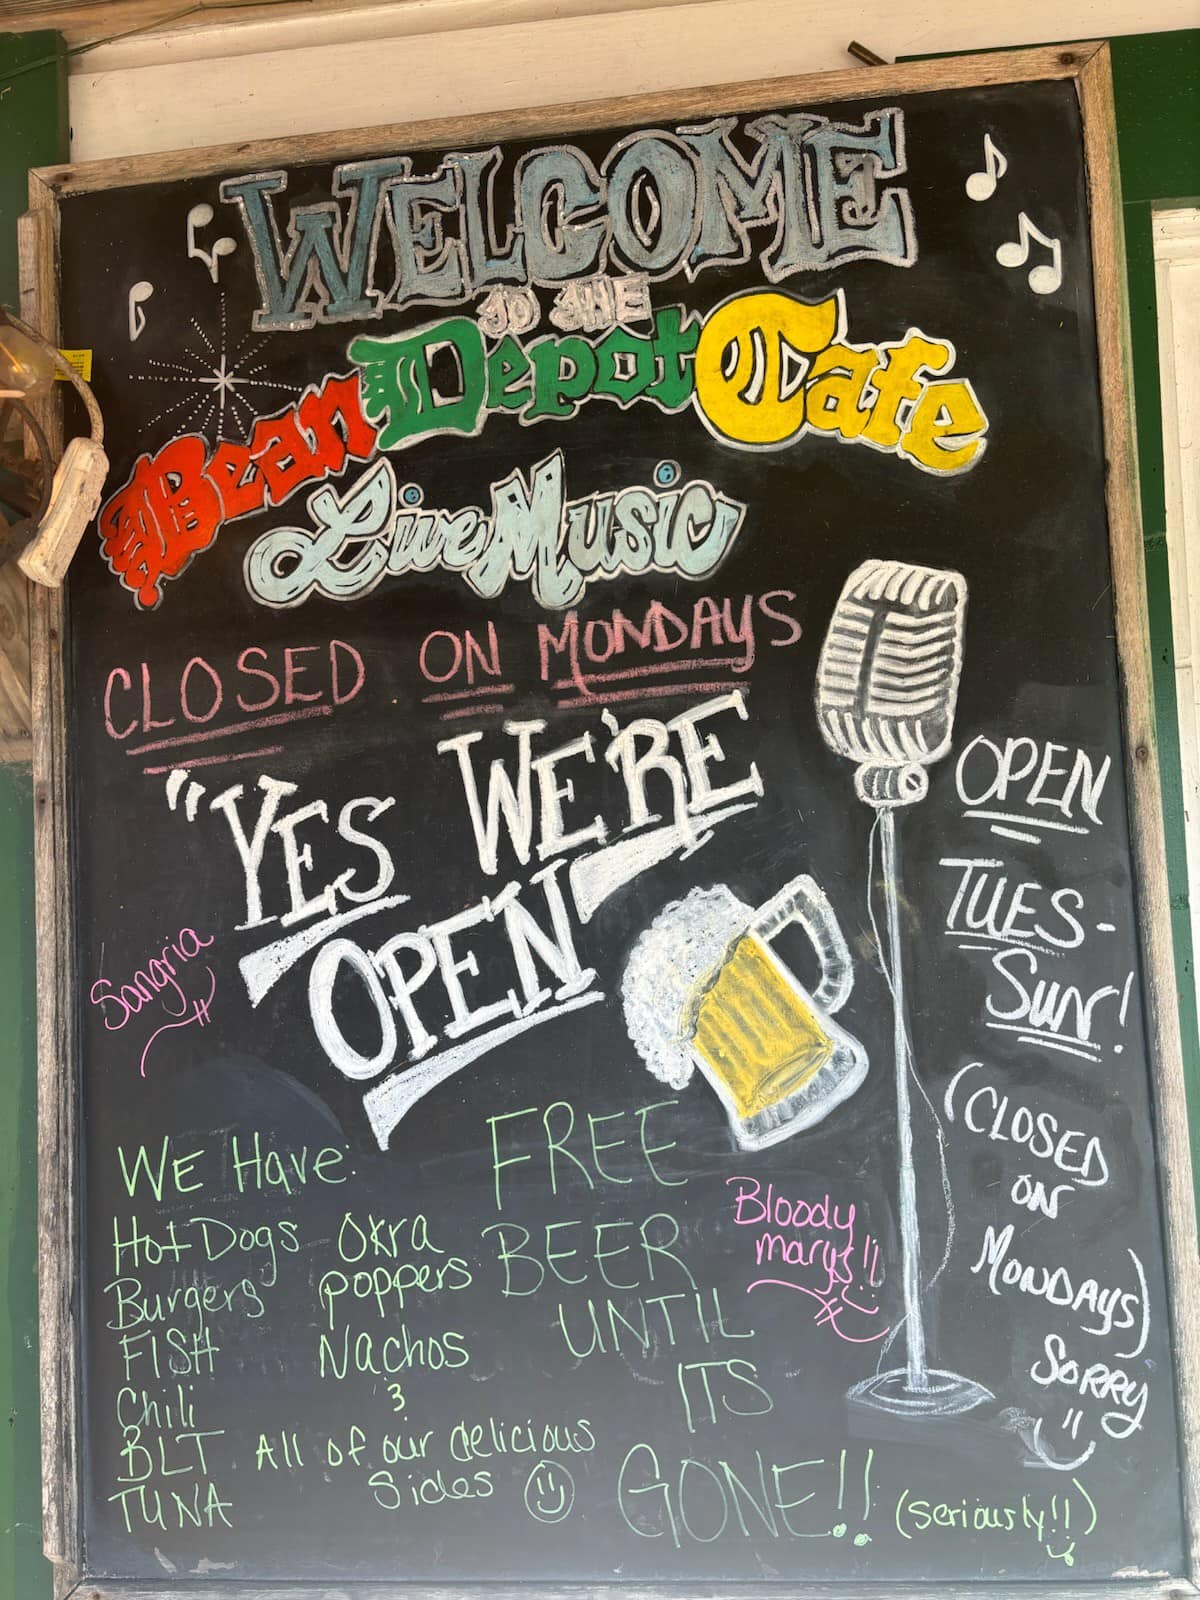 WELCOME
TO THE
Bean Depot Cafe
Live Music
CLOSED ON MONDAYS
"YES WE'RE
OPEN
OPEN
TUES-
SUN!
(CLOSED
ON
MONDAYS)
SORRY
Sangria
WE Have:
Hot Dogs
Burgers
FISH
Chili
BLT
TUNA
Okra
poppers
Nachos
&
All of our delicious
Sides
FREE
BEER
UNTIL
ITS
GONE!!
(seriously!!)
Bloody
marys!!